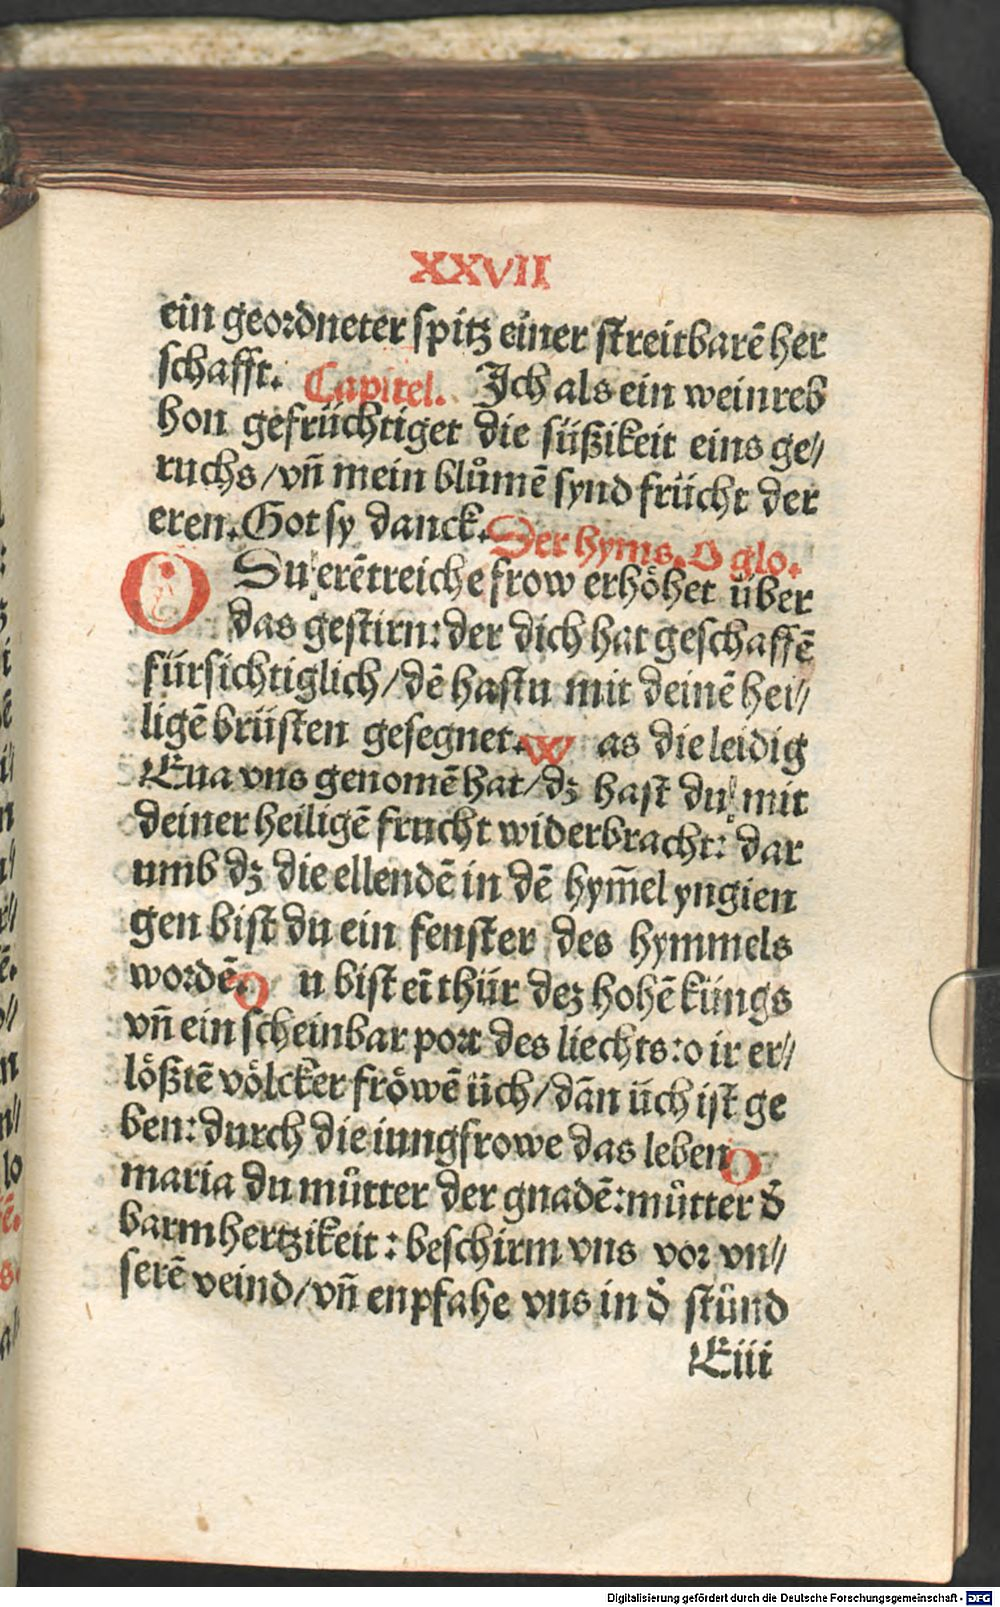 XXVII
ein geordneter spitz einer streitbarē her
schafft. Capitel. Ich als ein weinreb
hon gefrüchtiget die süßikeit eins ge//
ruchs/vñ mein blůmē synd frücht der
eren. Got sy danck. Der hyms. O glo.
O Du erētreiche frow erhöhet über
das gestirn: der dich hat geschaffē
fürsichtiglich/dē hastu mit deinē hei//
ligē brüsten gesegnet. W as die leidig
Eua vns genomē hat/dz hast du mit
deiner heiligē frucht widerbracht: dar
umb dz die ellendē in dē hym̄el yngien
gen bist du ein fenster des hymmels
wordē. D u bist eī thür dez hohē küngs
vñ ein scheinbar port des liechts: o ir er//
lößtē völcker fröwē üch/dān üch ist ge
ben: durch die iungfrowe das leben O
maria du můtter der gnadē: můtter d̕
barmhertzikeit: beschirm vns vor vn//
serē veind/vñ enpfahe vns in d̕ stünd
Eiii
Digitalisierung gefördert durch die Deutsche Forschungsgemeinschaft - DFG